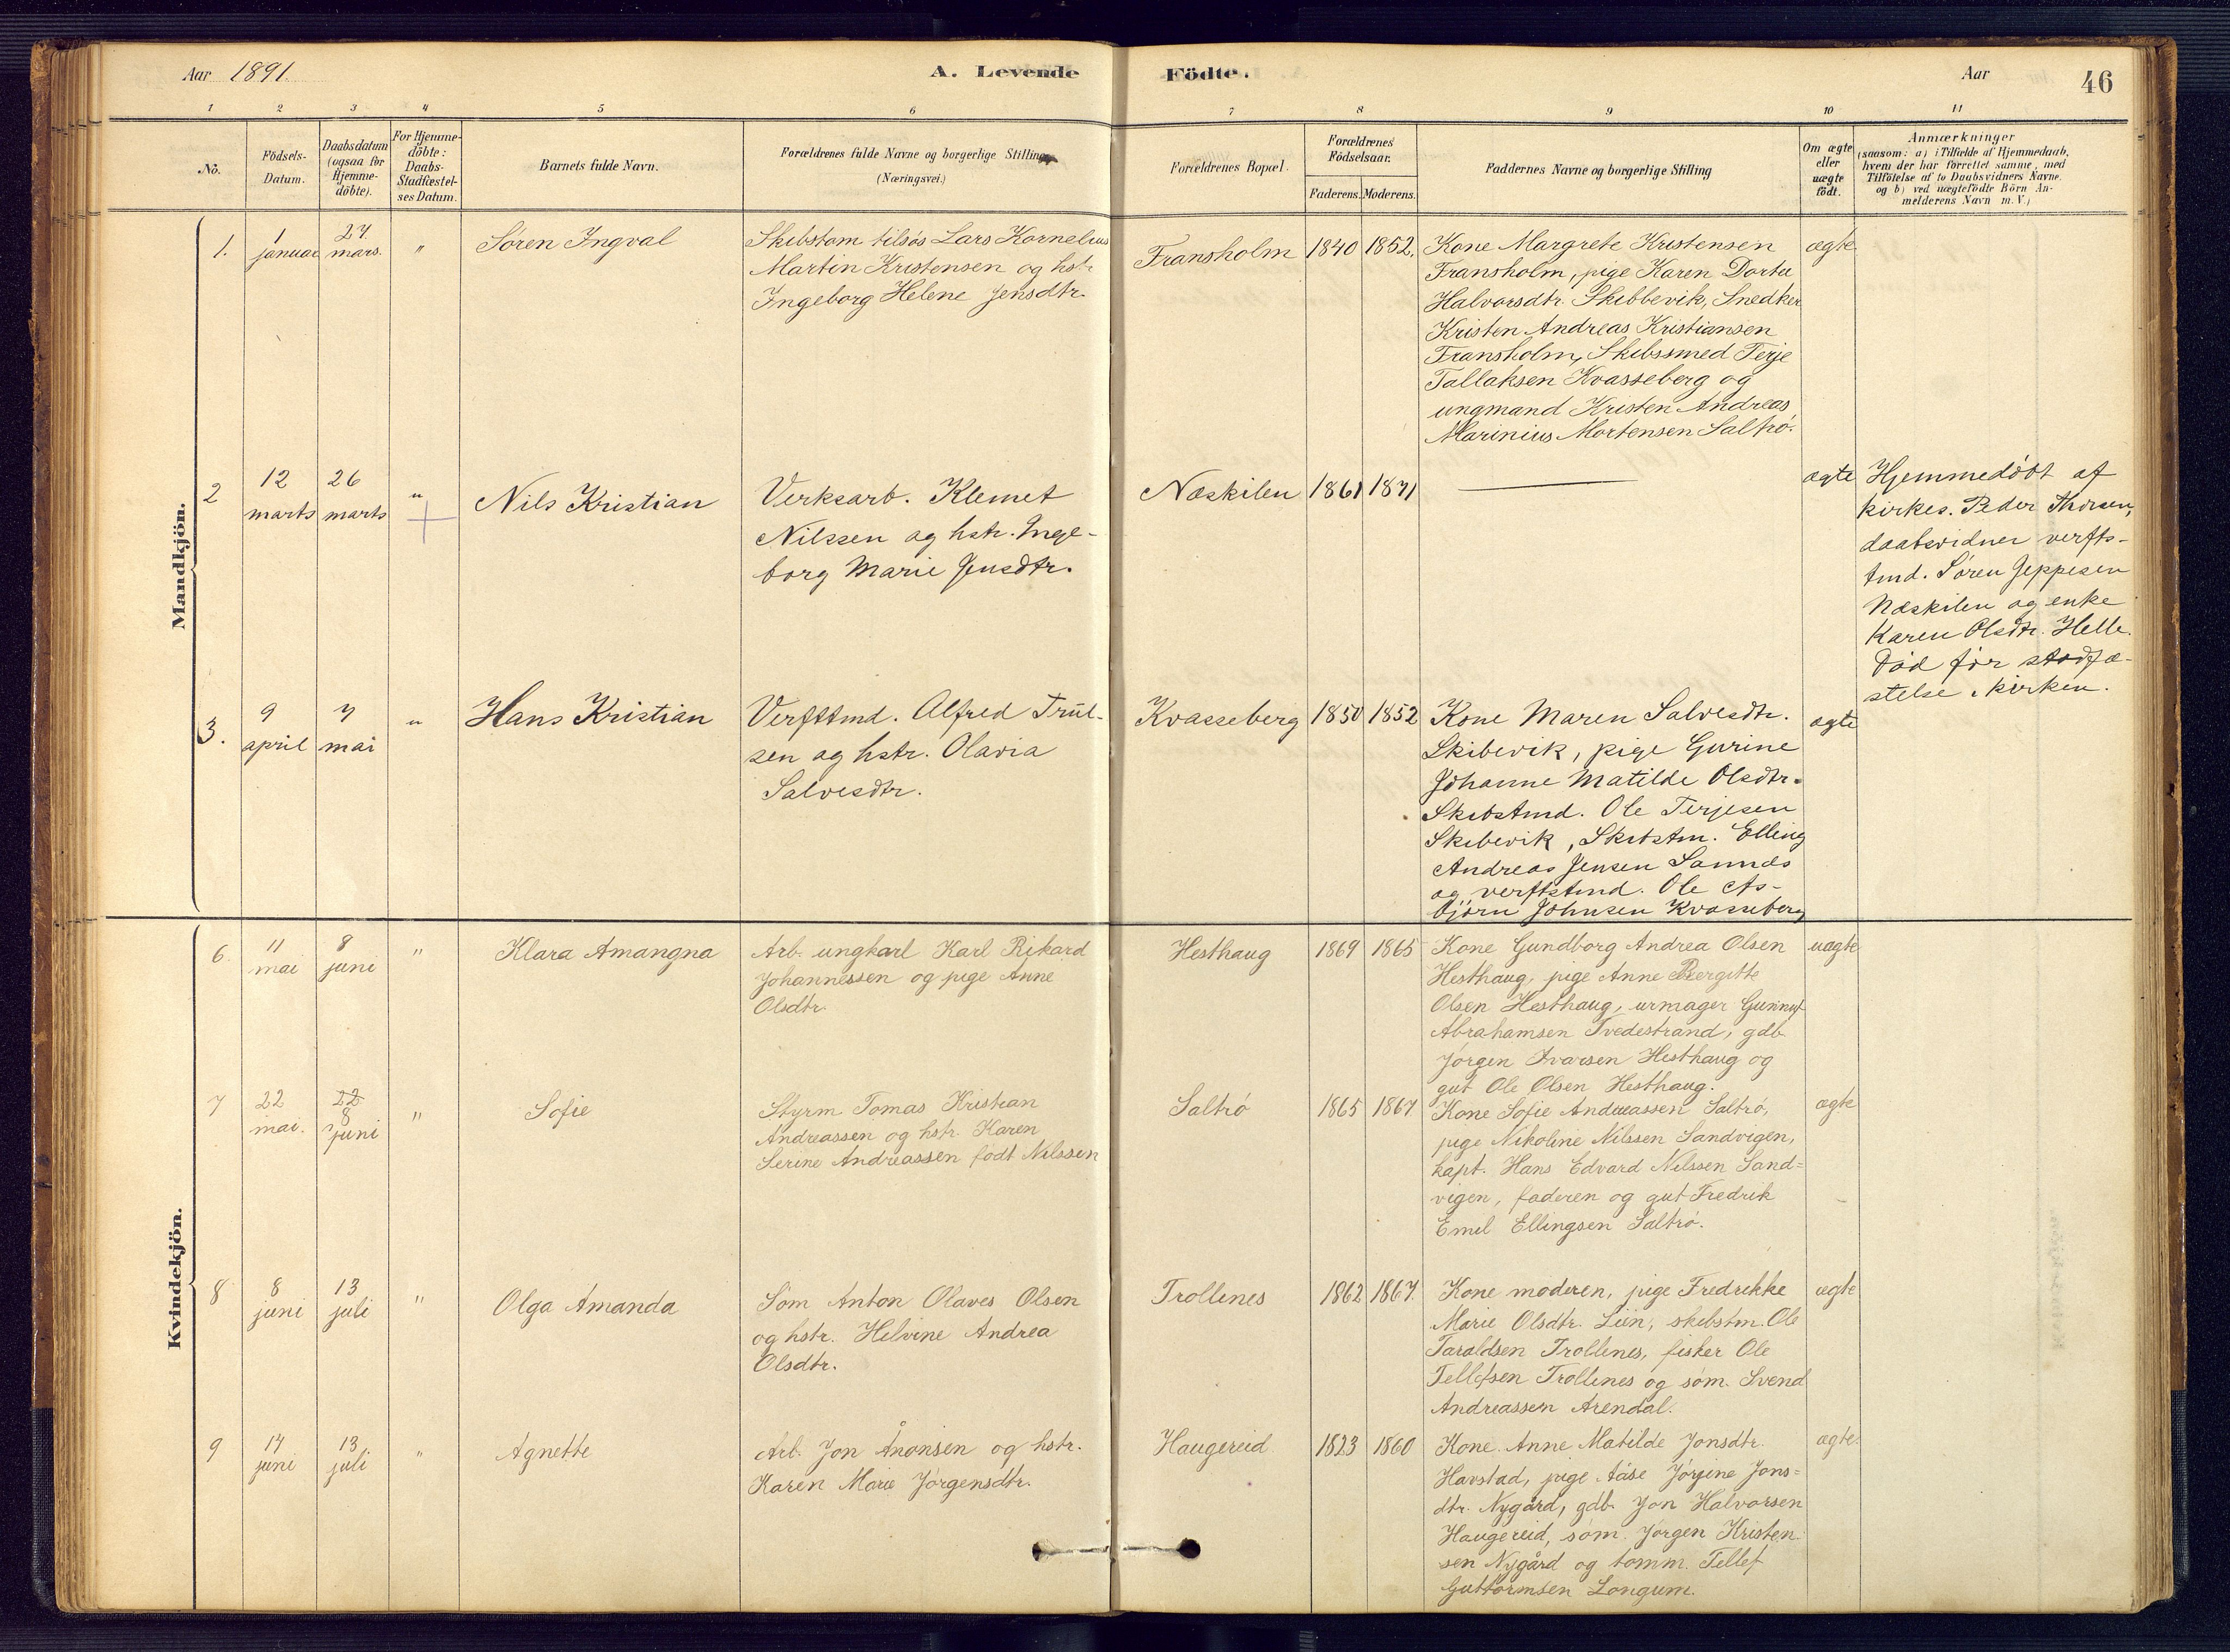 Aar 1891.
A. Levende Födte.
Aar
46
1 2 3 4 5 6 7 8 9 10 11
No.
Födsels-
Datum.
Daabsdatum
(ogsaa for
Hjemme-
döbte).
For Hjemme-
döbte:
Daabs-
Stadfæstel-
ses Datum.
Barnets fulde Navn.
Forældrenes fulde Navne og borgerlige Stilling
(Næringsvei.)
Forældrenes Bopæl.
Forældrenes
Födselsaar.
Faderens. Moderens.
Faddernes Navne og borgerlige Stilling
Om ægte
eller
uægte
födt.
Anmærkninger
(saasom: a) i Tilfælde af Hjemmedaab,
hvem der har forrettet samme, med
Tilföielse af to Daabsvidners Navne.
og b) ved uægtefödte Börn An-
melderens Navn m. V.)
Mandkjön.
1.
1
januar
27
mars.
"
Søren Ingval
Skibstøm tilsøs Lars Kornelius
Martin Kristensen og hstr
Ingeborg Helene Jensdtr.
Fransholm
1840
1852.
Kone Margrete Kristensen
Fransholm, pige Karen Dortea
Halvorsdtr. Skibbevik, Snedker
Kristen Andreas Kristiansen
Fransholm, Skibssmed Terje
Tallaksen Kvasseberg og
ungmand Kristen Andreas
Marinius Mortensen Saltrø.
ægte
2
12
marts
26
marts
"
Nils Kristian
Verksarb. Klemet
Nilssen og hstr. Inge-
borg Marie Jensdtr.
Næskilen
1861
1871
ægte
Hjemmedøbt af
kirkes. Peder Thorsen,
daabsvidner verfts-
tmd. Søren Jeppesen
Næskilen og enke
Karen Olsdtr. Helle.
Død før stadfæ-
stelse i kirken.
3.
9
april
7
mai
"
Hans Kristian
Verfttmd. Alfred Trul-
sen og hstr. Olavia
Salvesdtr.
Kvasseberg
1850
1852
Kone Maren Salvesdtr.
Skibevik, pige Gurine
Johanne Matilde Olsdtr.
Skibstmd. Ole Terjesen
Skibevik, Skibstm. Elling
Andreas Jensen Sannæs
og verftstmd. Ole As-
bjørn Johnsen Kvasseberg
ægte
Kvindekjön.
6
11
mai
8
juni
"
Klara Amangna
Arb. ungkarl Karl Rikard
Johannessen og pige Anne
Olsdtr.
Hesthaug
1869
1865
Kone Gundborg Andrea Olsen
Hesthaug, pige Anne Bergitte
Olsen Hesthaug, urmager Gunnuf
Abrahamsen Tvedestrand, gdb.
Jørgen Ivarsen Hesthaug og
gut Ole Olsen Hesthaug.
uægte
7
22
mai.
22
8
juni
"
Sofie
Styrm Tomas Kristian
Andreassen og hstr. Karen
Serine Andreassen født Nilssen
Saltrø
1865
1867
Kone Sofie Andreassen Saltrø,
pige Nikoline Nilssen Sandvigen,
kapt. Hans Edvard Nilssen Sand=
vigen, faderen og gut Fredrik
Emil Ellingsen Saltrø.
ægte
8
8
juni
13
juli
"
Olga Amanda
Søm Anton Olaves Olsen
og hstr. Helvine Andrea
Olsdtr.
Trollenes
1862
1867.
Kone moderen, pige Fredrikke
Marie Olsdtr. Lien, skibstm. Ole
Taraldsen Trollenes, fisker Ole
Tellefsen Trollenes og søm. Svend
Andreassen Arendal.
ægte
9
14
juni
13
juli
"
Agnette
Arb. Jon Ånonsen og hstr.
Karen Marie Jørgensdtr.
Haugereid
1823
1860
Kone Anne Matilde Jonsdtr.
Havstad, pige Åse Jørgine Jons=
dtr. Nygård, gdb. Jon Halvorsen
Haugereid, søm. Jørgen Kristen
sen Nygård og tømm. Tellef
Guttormsen Longum.
ægte.